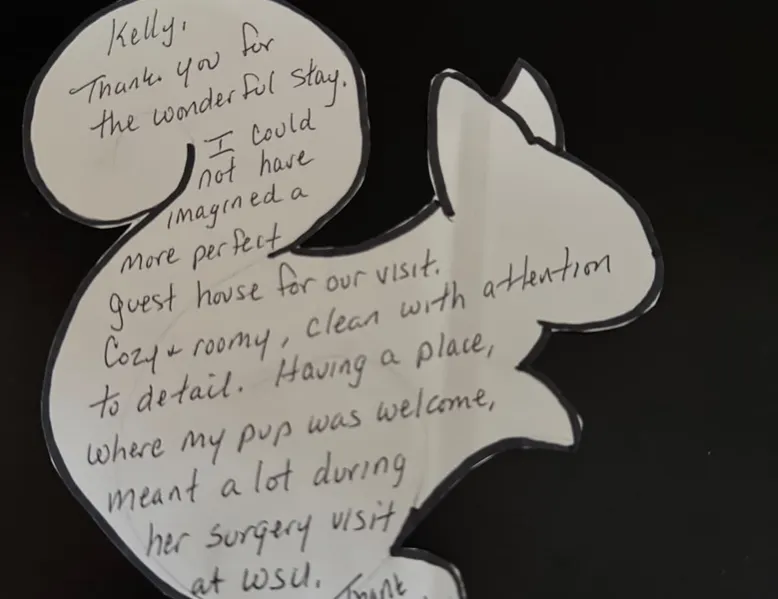 Kelly,
Thank you for
the wonderful stay.
I could
not have
imagined a
more perfect
guest house for our visit.
Cozy + roomy, clean with attention
to detail. Having a place,
where my pup was welcome,
meant a lot during
her surgery visit
at WSU. Thank